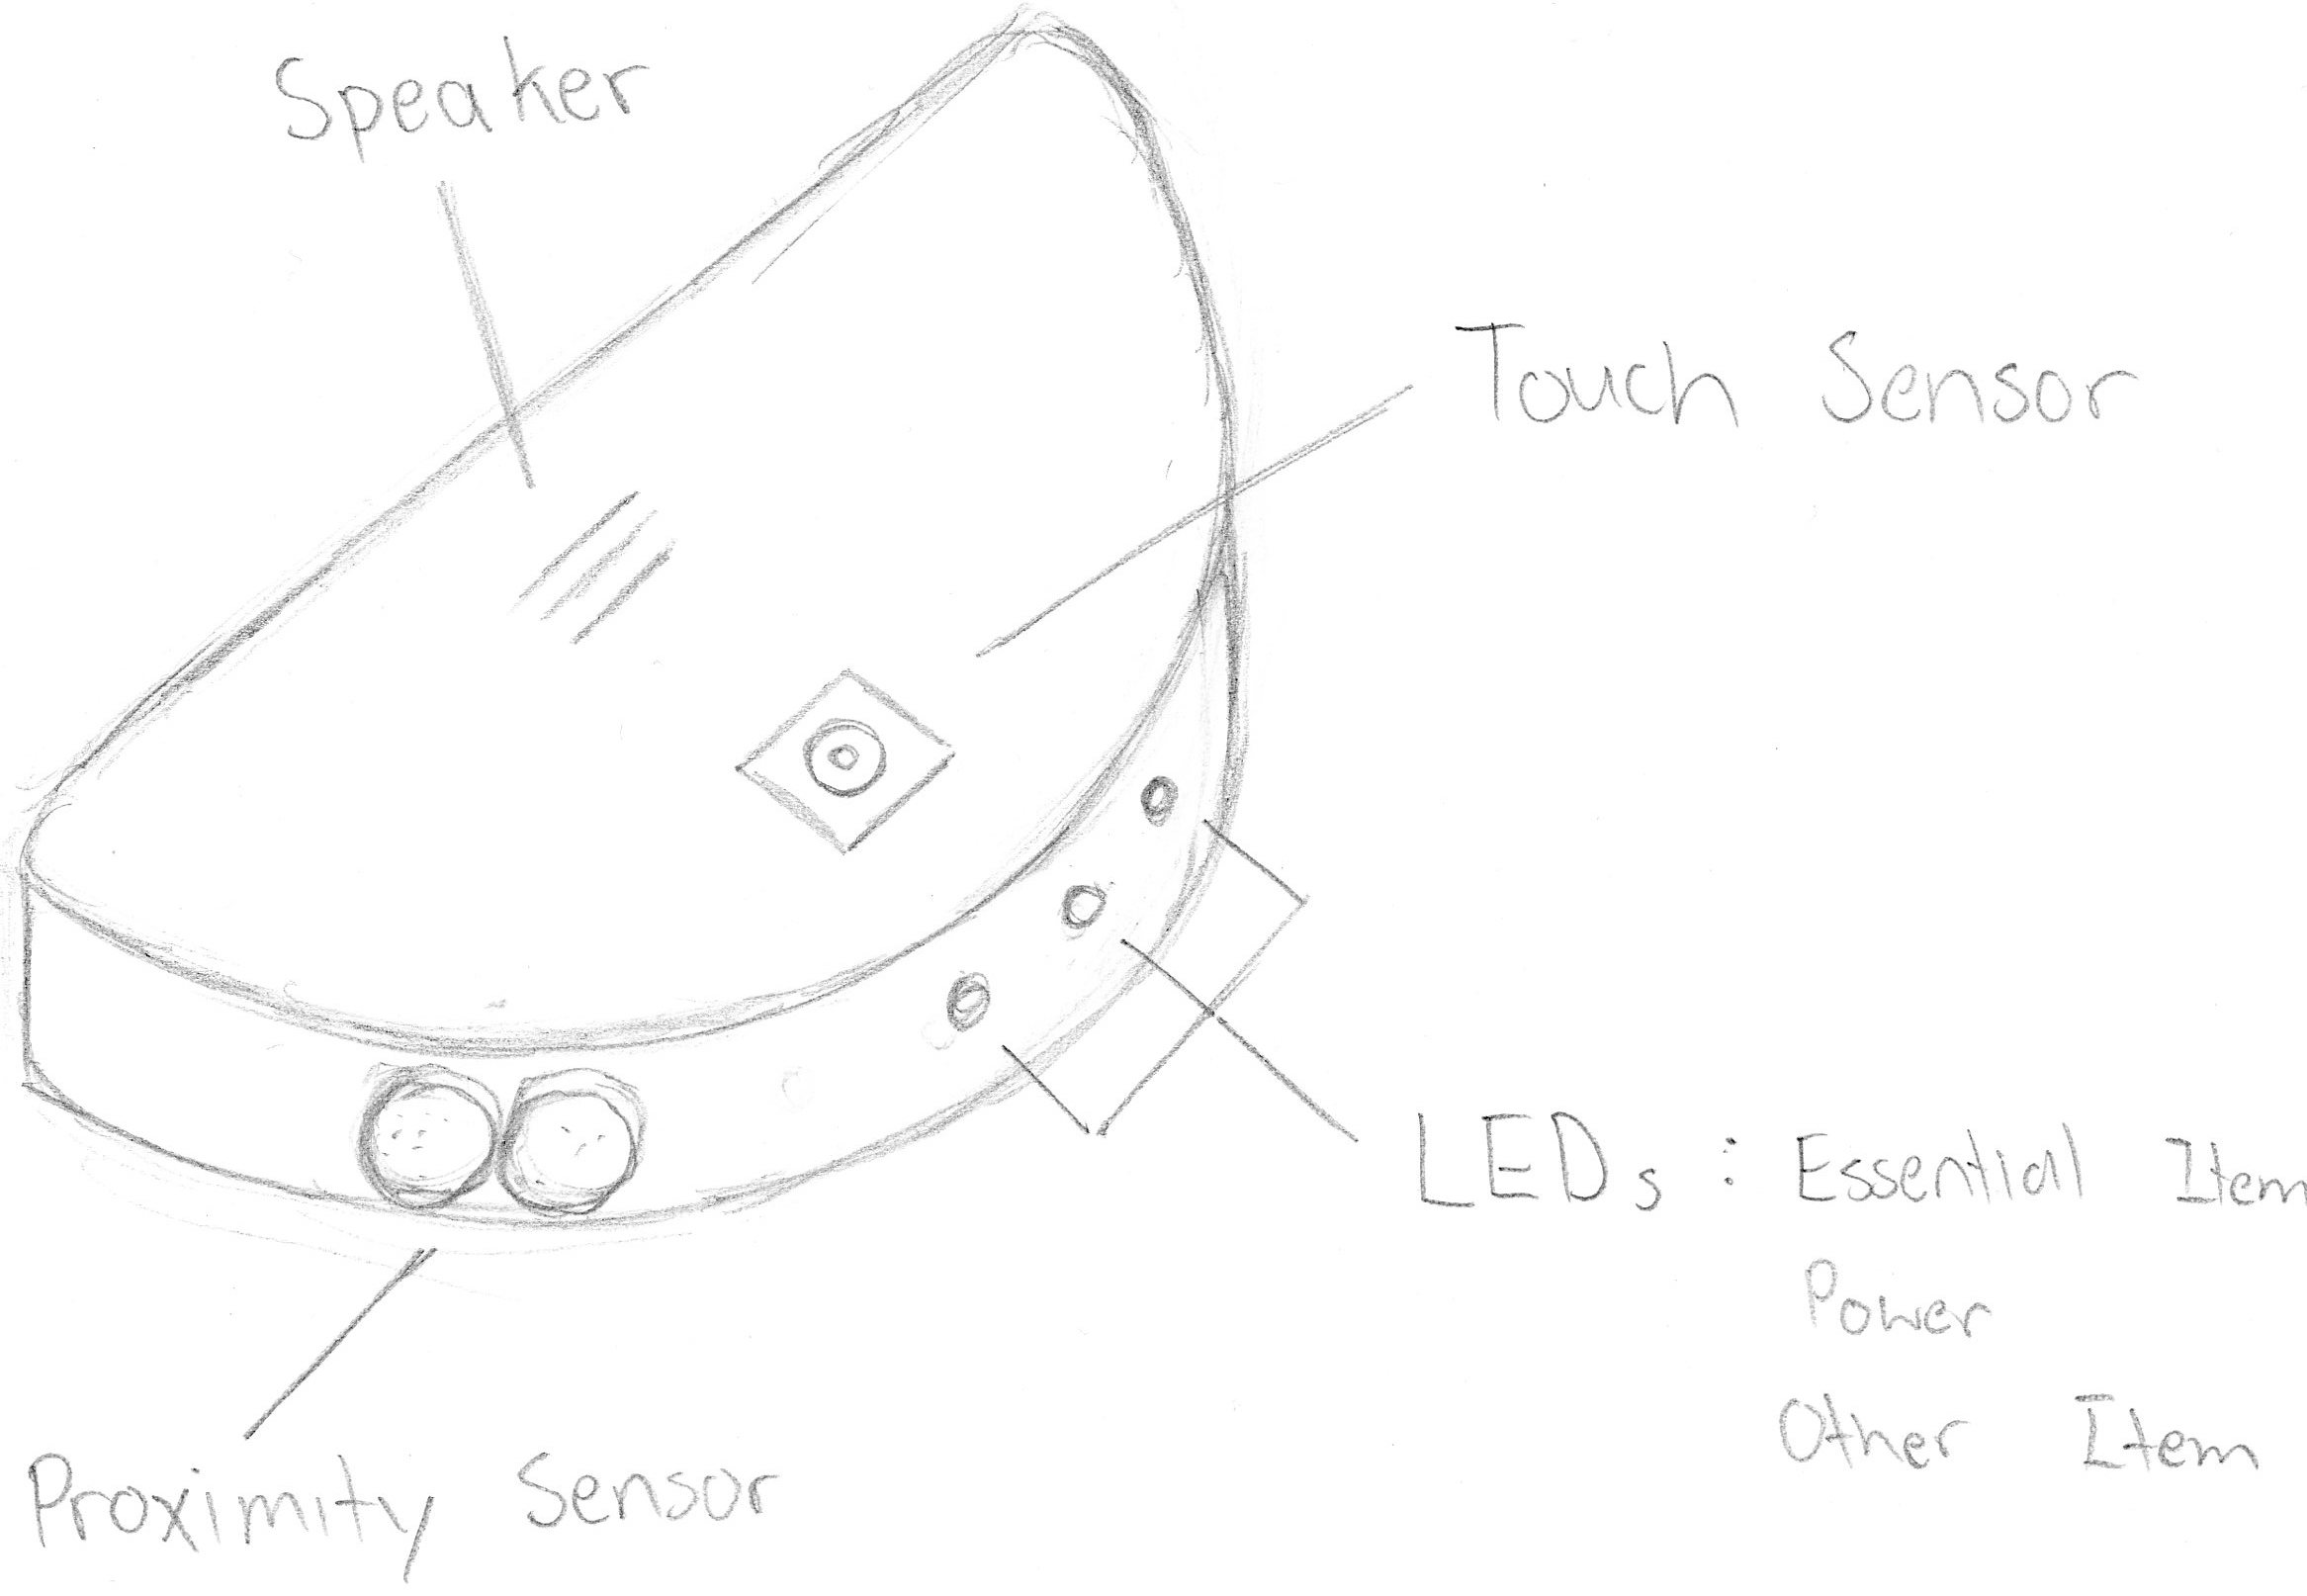 Speaker
Touch Sensor
LEDs : Essential Item
Power
Other Item
Proximity Sensor